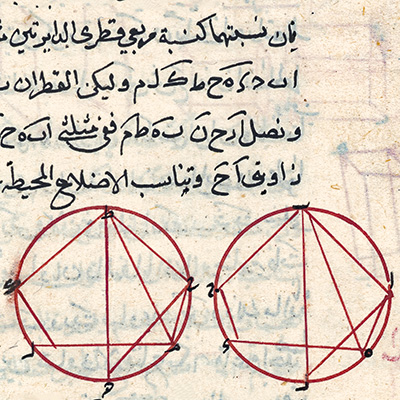 فان نسبتهما كنسبة مربعي قطري الدايرتين
اب د ء ه ح ط ك ل م وليكن القطران
ونصل ب ه ط م ففي مثلثي اب ه ح
زاويتي ا ح وتناسب الاضلاع المحيطة